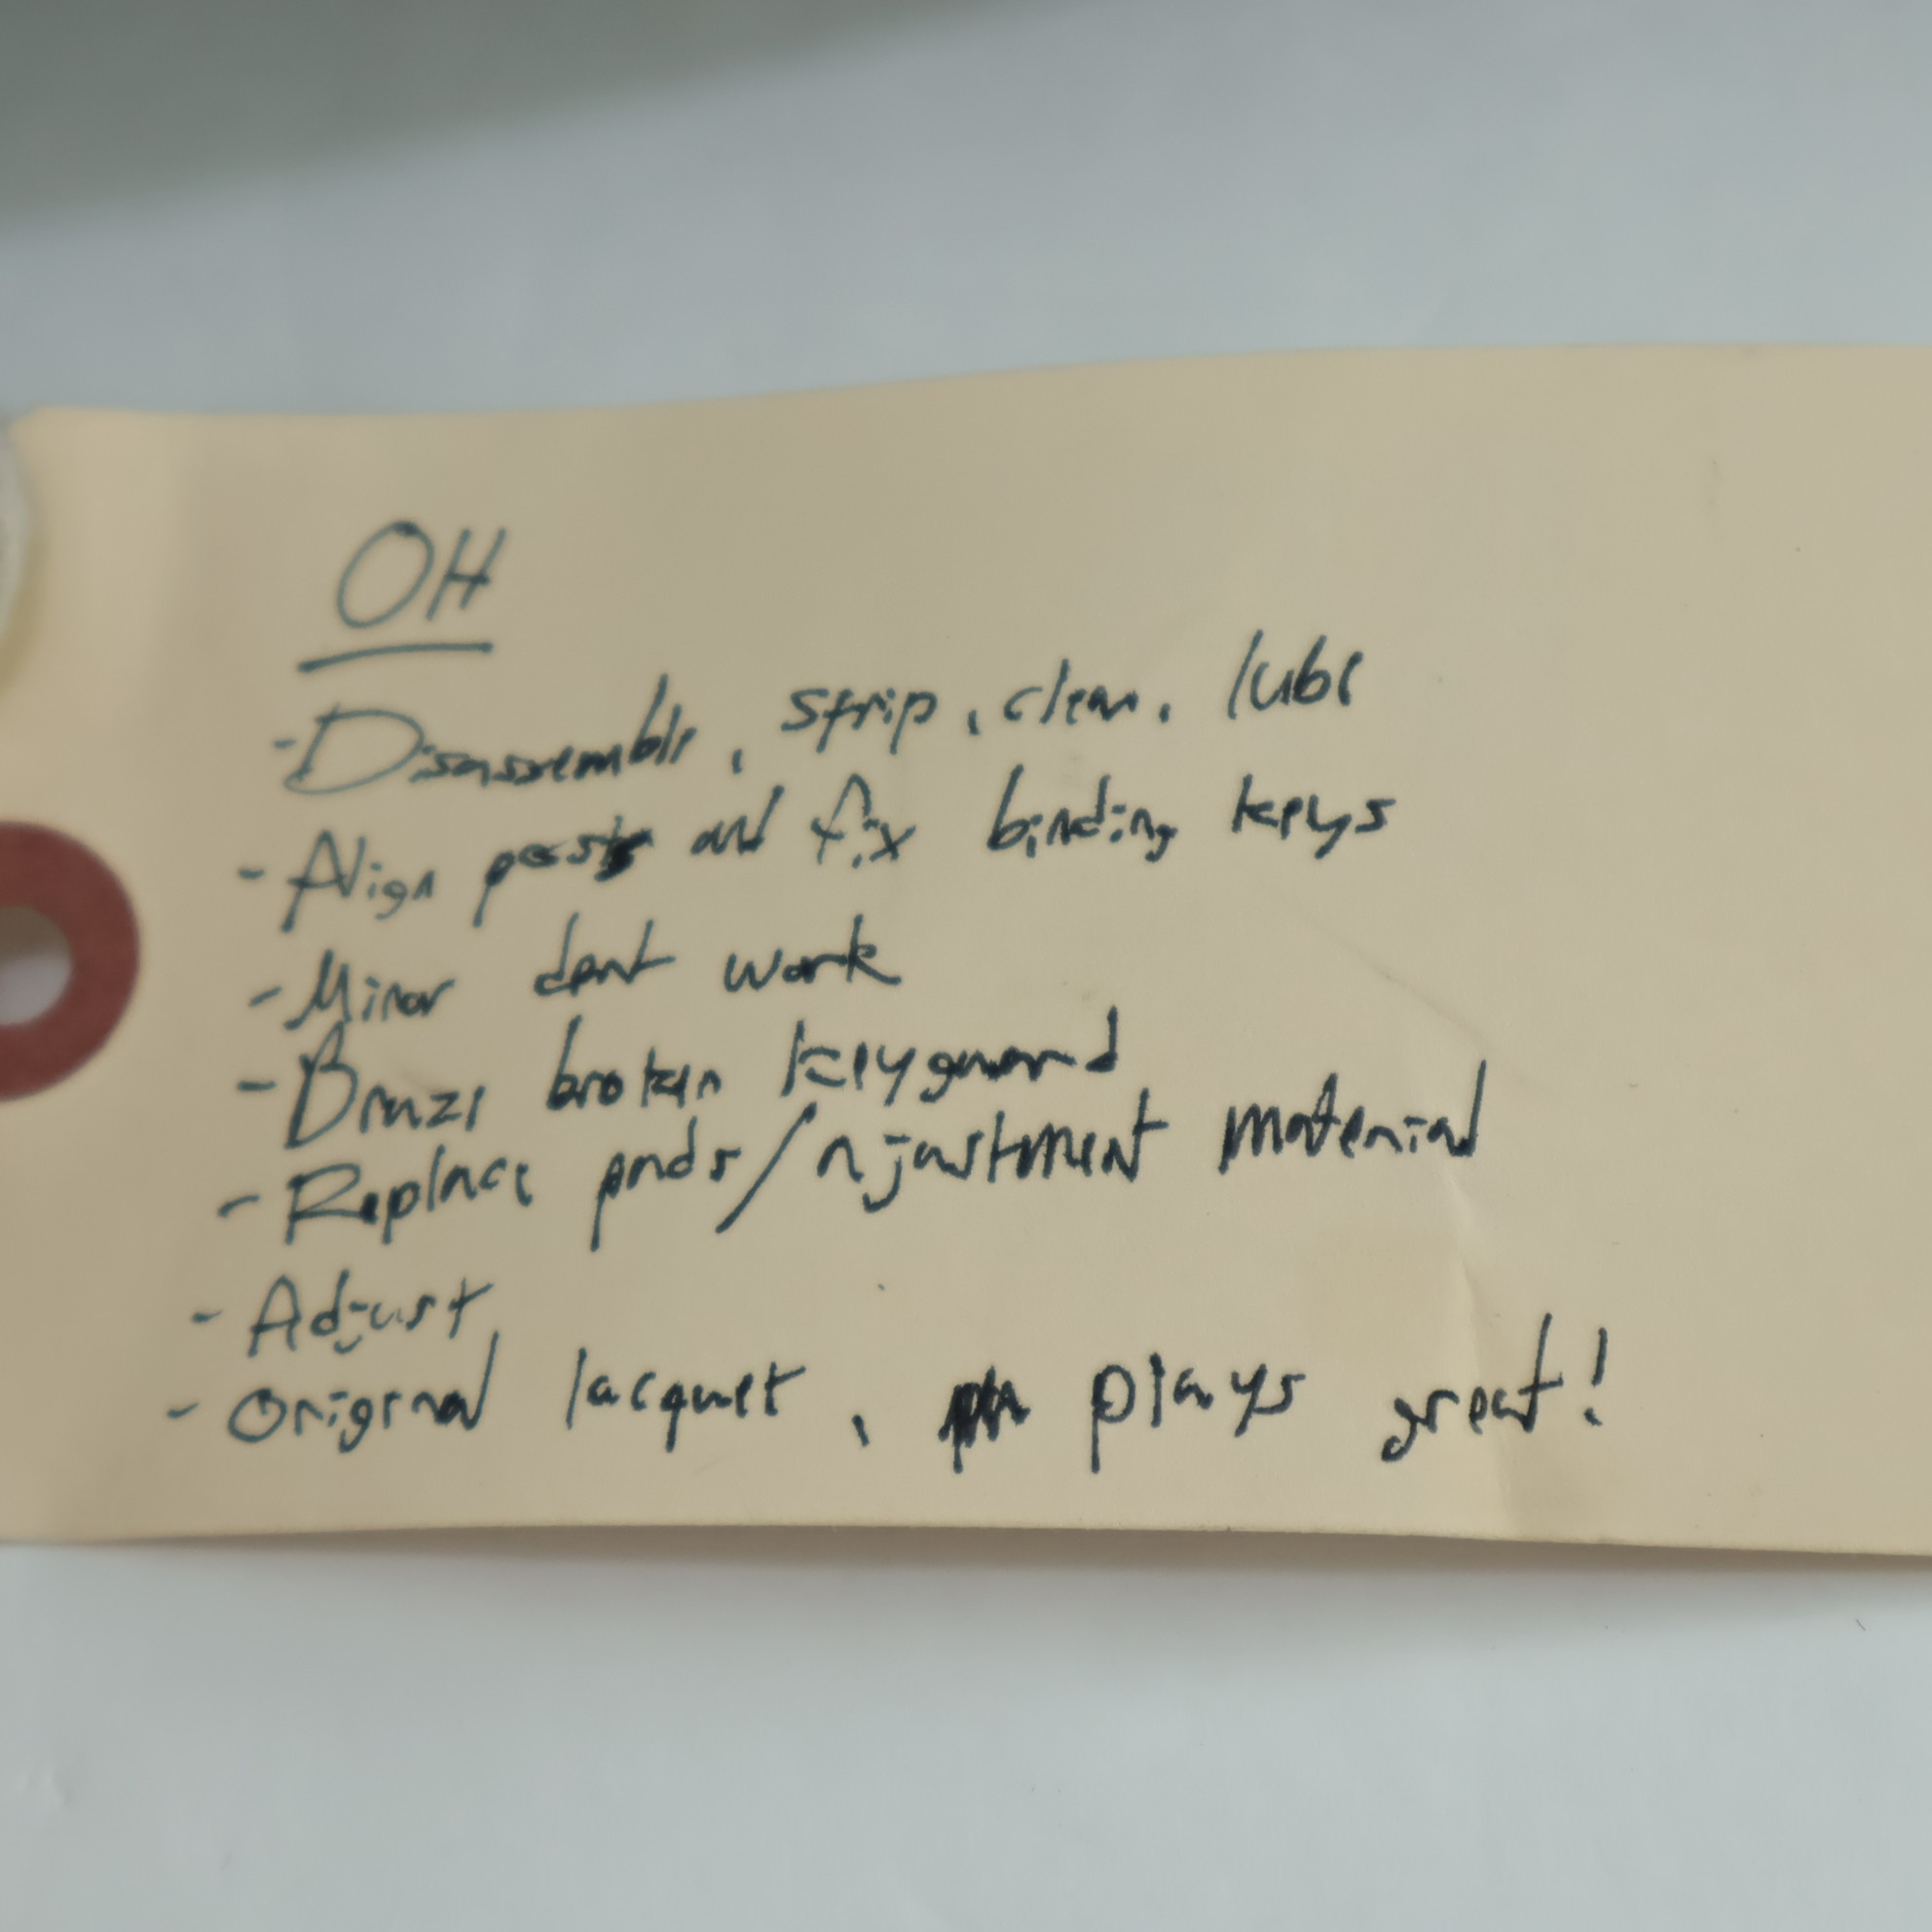 OH
- Disassemble, strip, clean, lube
- Align posts and fix binding keys
- Minor dent work
- Braze broken keyguard
- Replace pads/ajustment material
- Adjust
- Original lacquer, plays great!